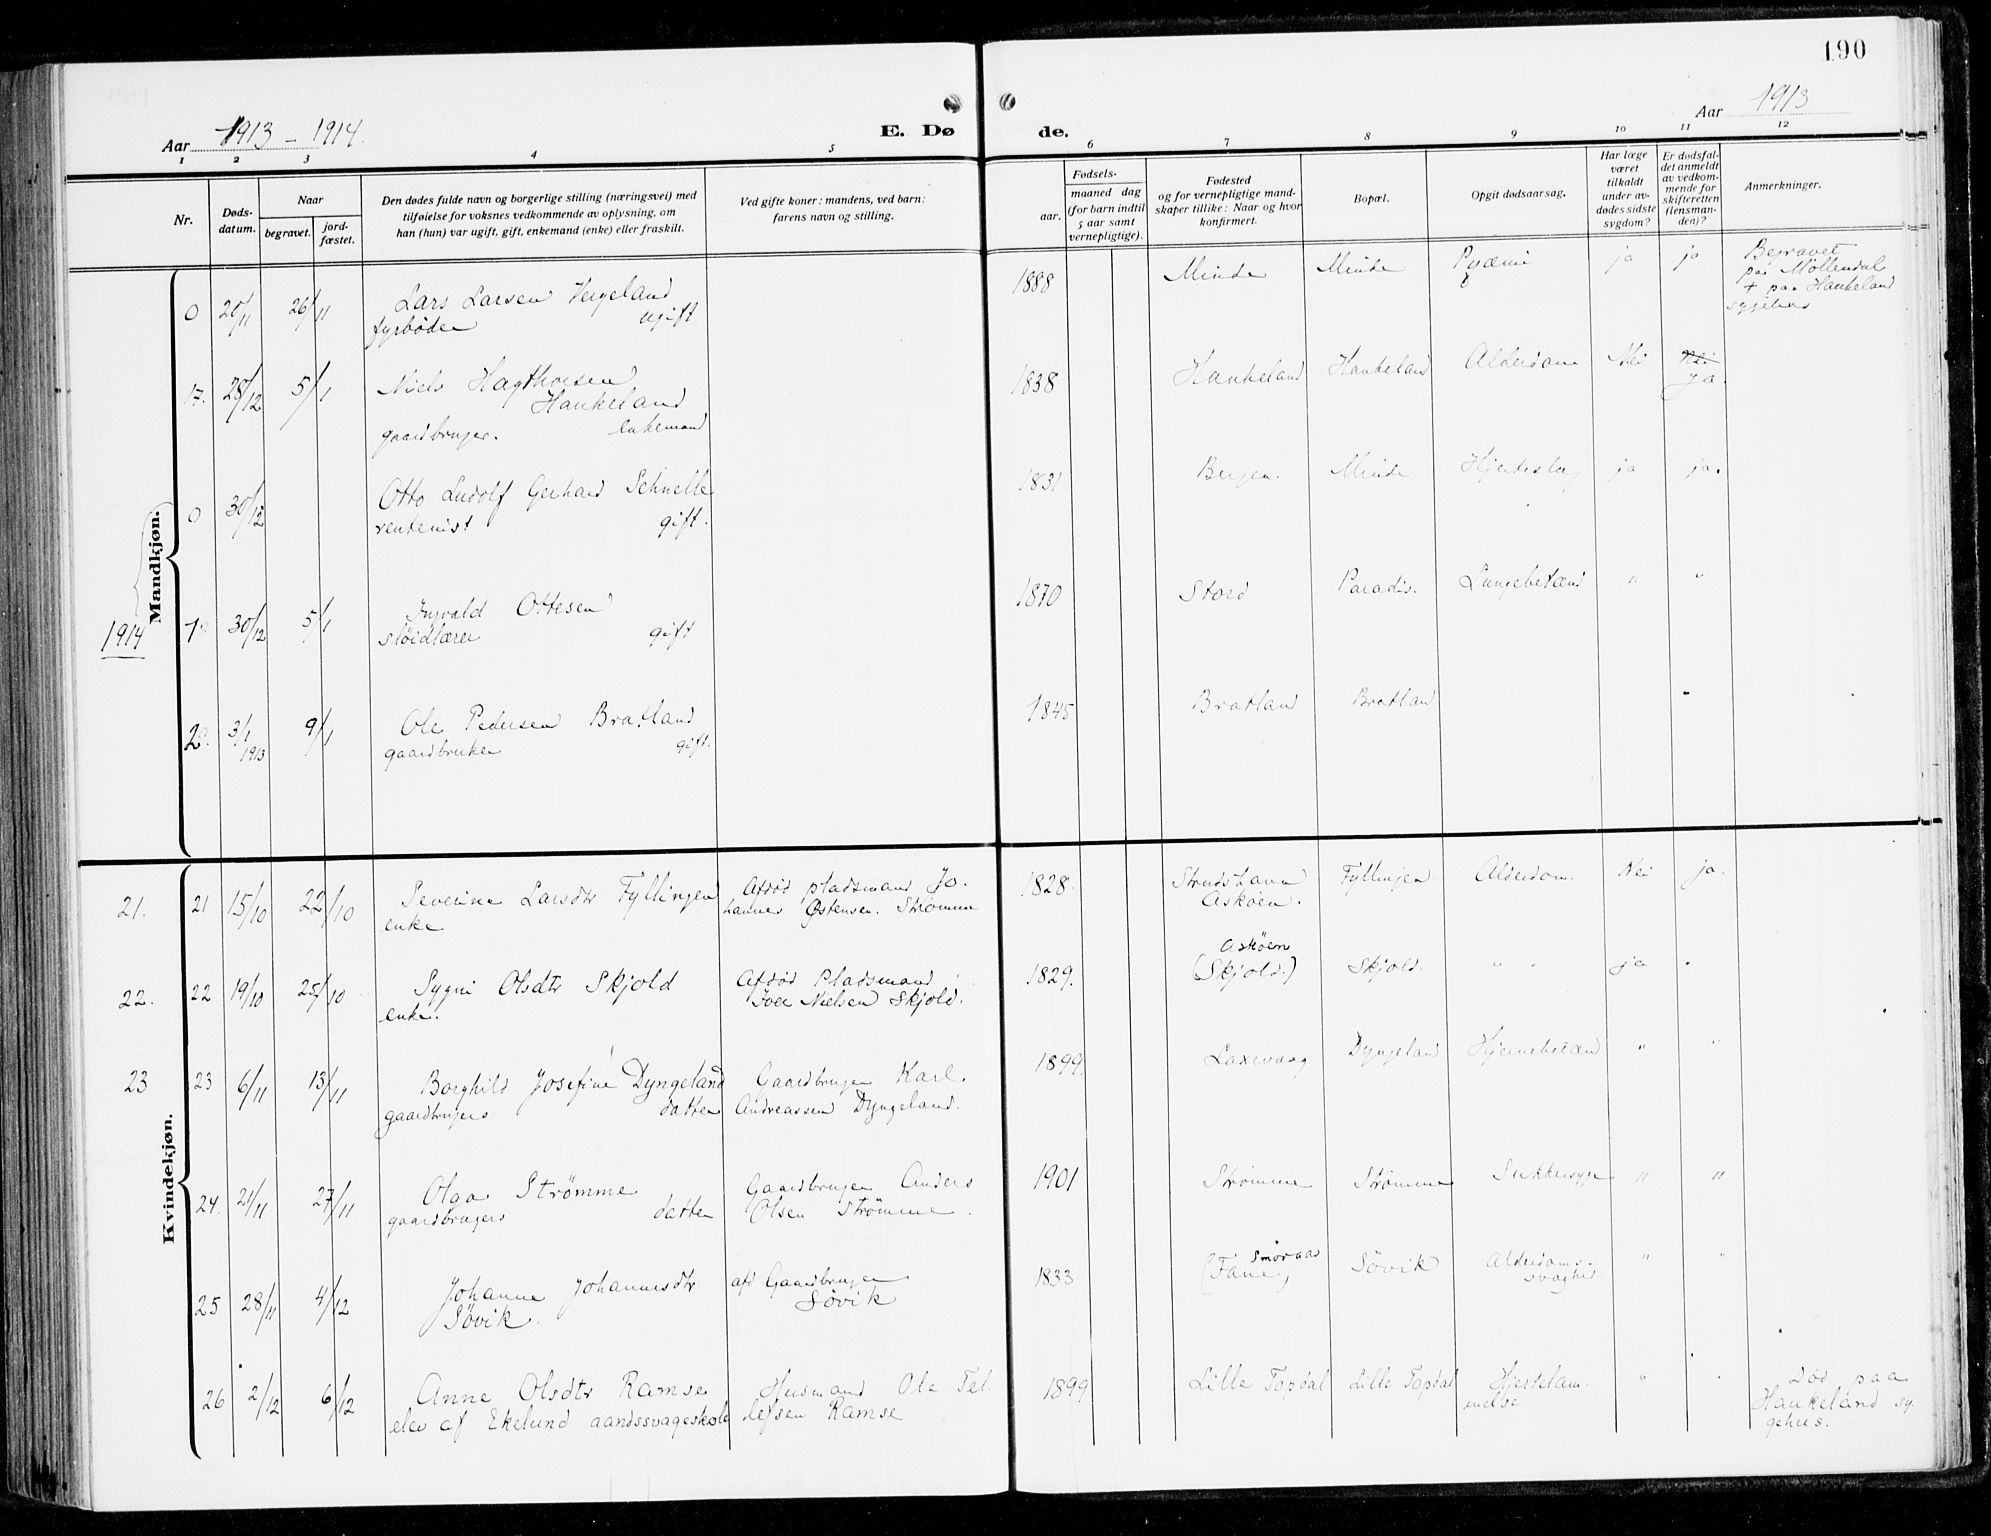 190
Aar 1913 - 1914.
E. Dø
de.
Aar 1913
1 2 3 4 5 6 7 8 9 10 11 12
Nr.
Døds-
datum.
Naar
begravet.
jord-
fæstet.
Den dødes fulde navn og borgerlige stilling (næringsvei) med
tilføielse for voksnes vedkommende av oplysning, om
han (hun) var ugift, gift, enkemand (enke) eller fraskilt.
Ved gifte koner: mandens, ved barn:
farens navn og stilling.
Fødsels-
aar.
maaned dag
(for barn indtil
5 aar samt
vernepligtige).
Fødested
og for vernepligtige mand-
skaper tillike: Naar og hvor
konfirmert.
Bopæl.
Opgit dødsaarsag.
Har læge
været
tilkaldt
under av-
dødes sidste
sygdom?
Er dødsfal-
det anmeldt
av vedkom-
mende for
skifteretten
(lensman-
den)?
Anmerkninger.
Mandkjøn.
0 20/11 26/11 Lars Larsen Hergeland 1888 Minde Minde Pyæmi ja ja Begravet
fyrbøder ugift paa Möllendal
+ paa Haukeland
sygehus
17. 28/12 5/1 Niels Hagthorsen 1838 Haukeland Haukeland Alderdom Nei Nei
Haukeland ja.
gaardbruger. enkemand
0 30/12 Otto Ludolf Gerhard Schnelle 1831 Bergen. Minde Hjerteslag ja ja.
rentenist gift.
1914
1 30/12 5/1 Ingvald Ottesen 1870 Stord Paradis. Lungebetænd " "
sløidlærer gift
2 3/1 1913 9/1 Ole Pedersen Bratland 1845 Bratlan Bratlan
gaardbruker gift.
Kvindekjøn.
21. 21 15/10 22/10 Severine Larsdtr Fyllingen Afdød pladsmand Jo. 1828. Strudshavn Fyllingen Alderdom. Nei ja.
enke hannes Østensen. Strømme Askøen.
22. 22 19/10 25/10 Sygni Olsdtr Skjold Afdød Pladsmand 1829. Askøen (Skjold.) Skjold. " " ja
enke. Iver Nielsen Skjold.
23 23 6/11 13/11 Borghild Josefine Dyngeland Gaardbruger Karl. 1899. Laxevaag Dyngeland Hjernebetæn " "
gaardbrugers datter Andreassen Dyngeland.
24. 21/11 27/11 Olga Strømme Gaardbruger Anders 1901 Strømme Strømme Sukkersyge " "
gaardbrugers datter Olsen Strømme.
25 28/11 4/12 Johanne Johannesdtr afd Gaardbruger 1833 Smøraas (Fane) Søvik Alderdoms- " "
Søvik. Søvik svaghed.
26 2/12 6/12 Anne Olsdtr Ramse Husmand Ole Tel. 1899 Lille Topdal Lille Topdal Hjertelam. " " Død paa
elev af Ekelund aandssvageskole lefsen Ramse melse Haukeland sy.
gehus.